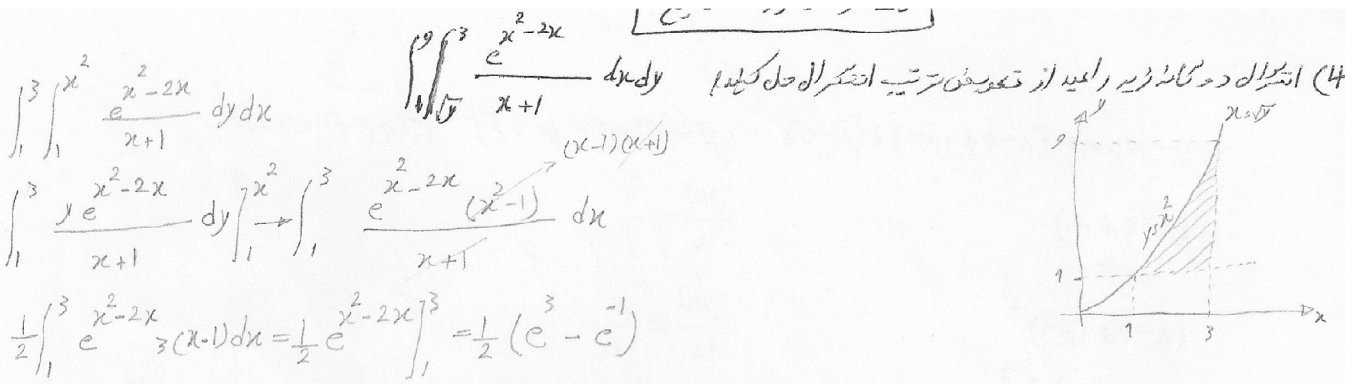 4) انتگرال دوگانه زیر را بعد از تعویض ترتیب انتگرال حل کنید؟ ∫₁⁹∫_√y³ e^(x²-2x)/(x+1) dxdy
∫₁³∫₁^(x²) e^(x²-2x)/(x+1) dydx
∫₁³ y e^(x²-2x)/(x+1) dy]₁^(x²) → ∫₁³ e^(x²-2x) (x²-1)/(x+1) dx
(x-1)(x+1)
1/2 ∫₁³ e^(x²-2x) (x-1)dx = 1/2 e^(x²-2x)]₁³ = 1/2 (e³ - e⁻¹)
y
x=√y
9
y=x²
1
1 3
x